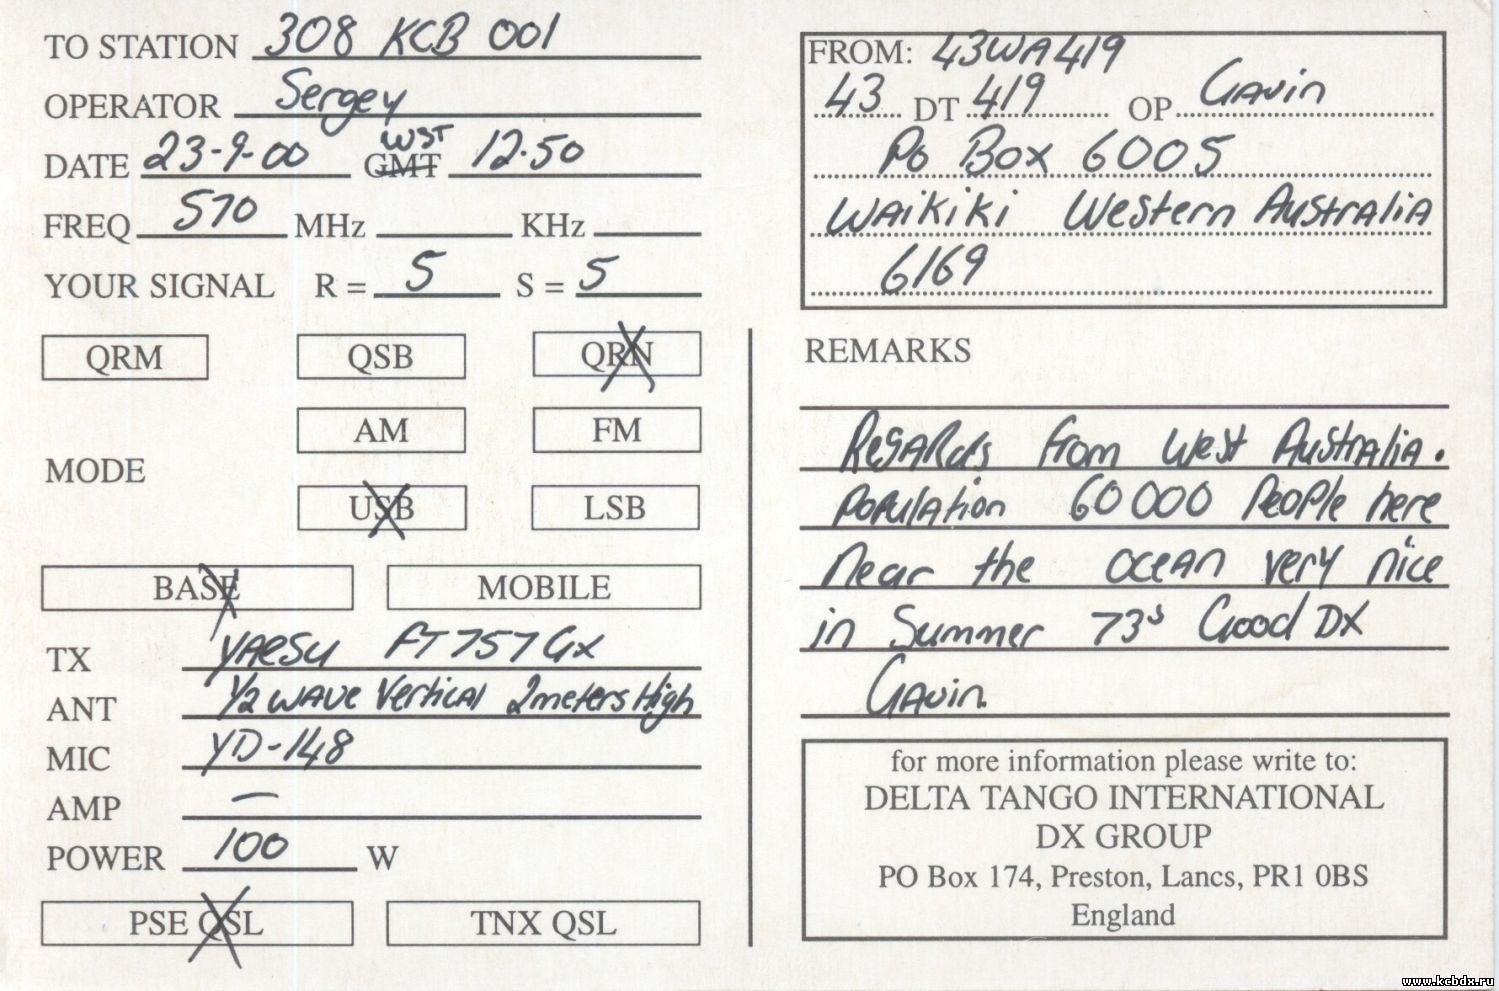 TO STATION 308 KCB 001
OPERATOR Sergey
DATE 23-9-00 GMT WST 12.50
FREQ 570 MHz KHz
YOUR SIGNAL R = 5 S = 5
QRM QSB QRN
AM FM
MODE
USB LSB
BASE MOBILE
TX YAESU FT757GX
ANT 1/2 WAVE Vertical 2meters High
MIC YD-148
AMP —
POWER 100 W
PSE QSL TNX QSL
FROM: 43WA419
43 DT 419 OP Gavin
Po Box 6005
WAIKIKI Western Australia
6169
REMARKS
Regards from West Australia.
Population 60000 People here
Near the ocean very nice
in Summer 73s Good DX
Gavin.
for more information please write to:
DELTA TANGO INTERNATIONAL
DX GROUP
PO Box 174, Preston, Lancs, PR1 0BS
England
www.kcbdx.ru